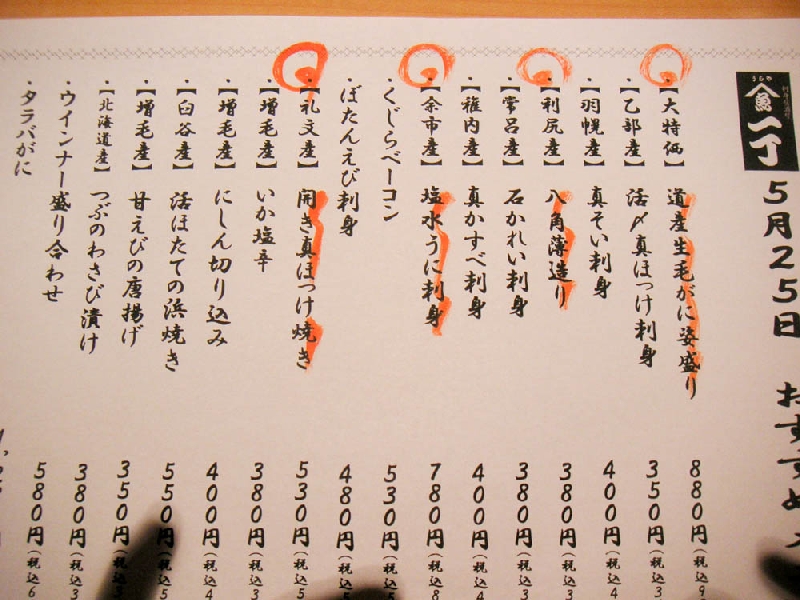 うおや 一丁
5月25日 おすすめ
・【大特価】 道産生毛がに姿盛り 880円(税込9
・【乙部産】 活〆真ほっけ刺身 350円(税込3
・【羽幌産】 真そい刺身 400円(税込4
・【利尻産】 八角薄造り 380円(税込3
・【常呂産】 石かれい刺身 380円(税込3
・【稚内産】 真かすべ刺身 400円(税込4
・【余市産】 塩水うに刺身 780円(税込8
・くじらベーコン 530円(税込5
・ぼたんえび刺身 480円(税込5
・【礼文産】 開き真ほっけ焼き 530円(税込5
・【増毛産】 いか塩辛 380円(税込3
・【増毛産】 にしん切り込み 400円(税込4
・【臼谷産】 活ほたての浜焼き 550円(税込5
・【増毛産】 甘えびの唐揚げ 350円(税込3
・【北海道産】 つぶのわさび漬け 380円(税込3
・ウインナー盛り合わせ 580円(税込6
・タラバがに